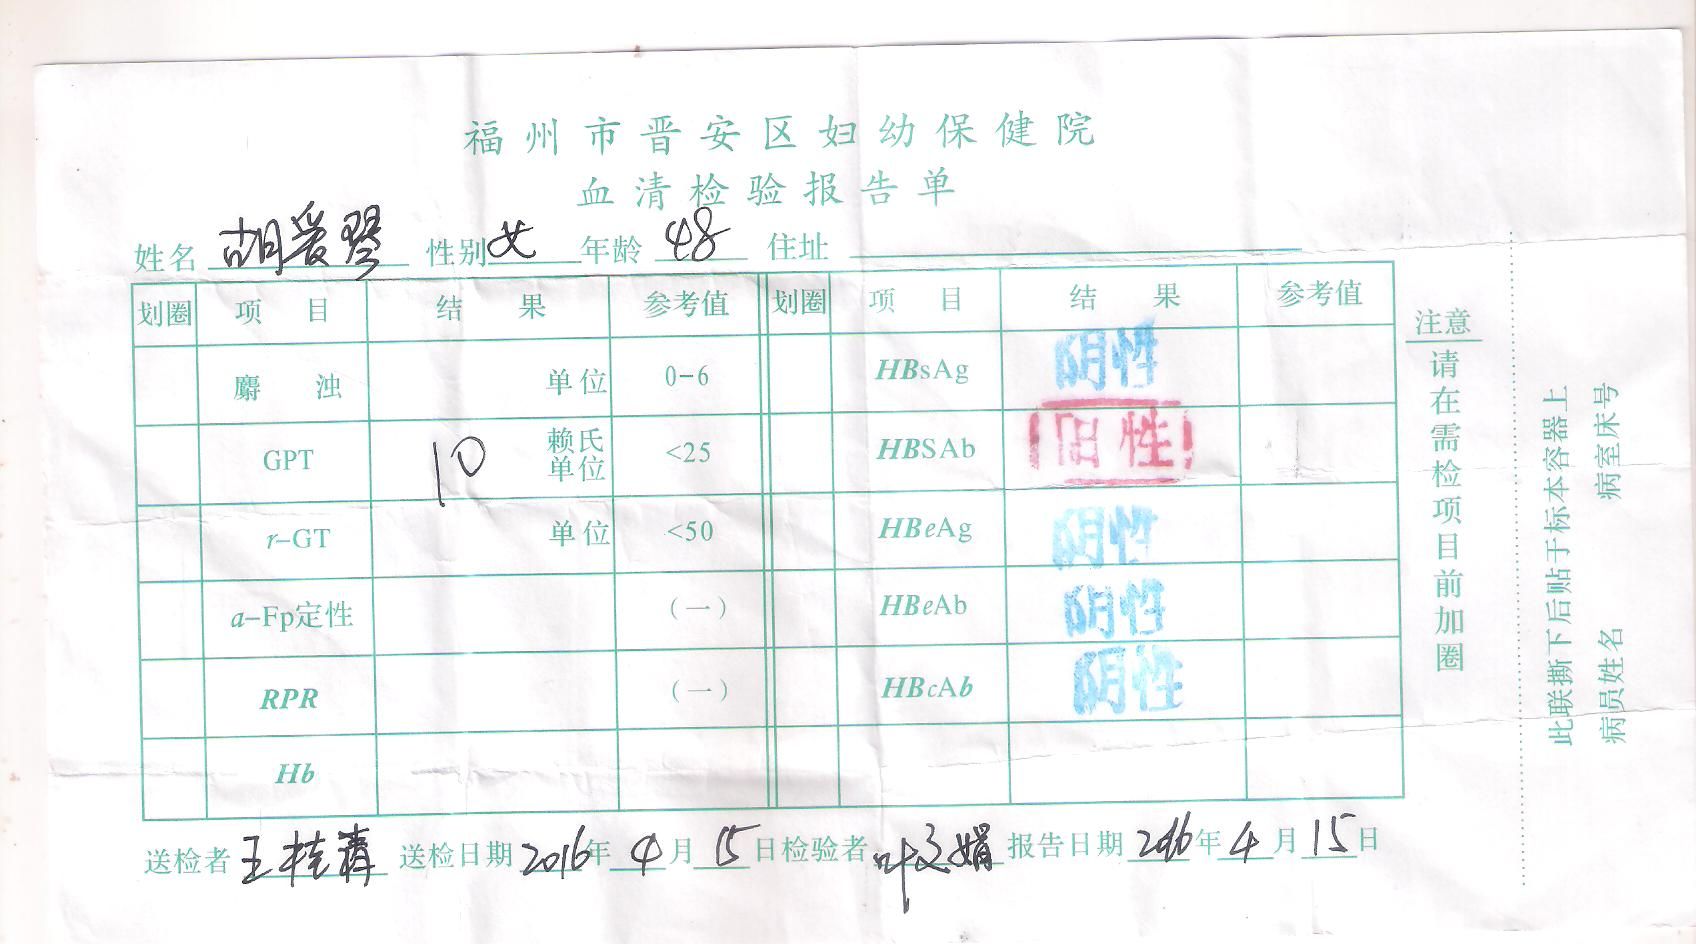 福州市晋安区妇幼保健院
血清检验报告单
姓名 胡爱琴 性别 女 年龄 48 住址
划圈 项目 结果 参考值 划圈 项目 结果 参考值
麝浊 单位 0-6 HBsAg 阴性
GPT 10 赖氏单位 <25 HBSAb 阳性
r-GT 单位 <50 HBeAg 阴性
a-Fp定性 (一) HBeAb 阴性
RPR (一) HBcAb 阴性
Hb
送检者 王桂 送检日期 2016年4月15日 检验者 叶文娟 报告日期 2016年4月15日
注意
请在需检项目前加圈
此联撕下后贴于标本容器上
病员姓名 病室床号